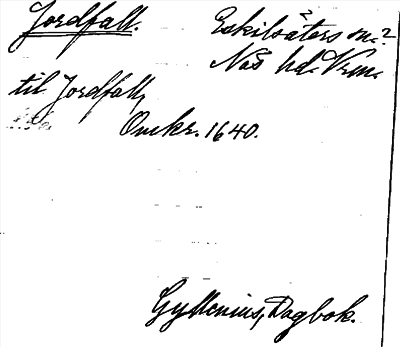 Jordfall.
Eskilsäters sn.?
Näs hd. Vrm.
til Jordfall,
Omkr. 1640.
Gyllenius, Dagbok.